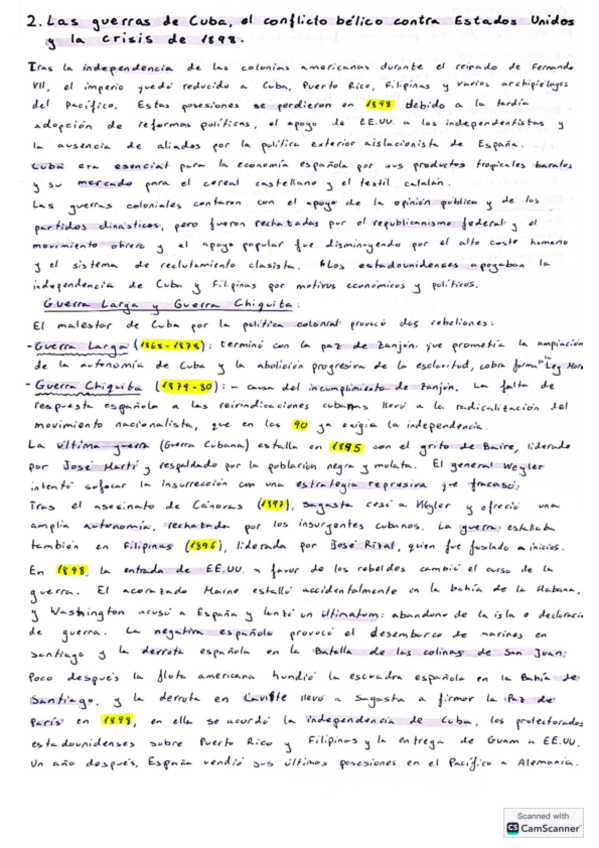 2. Las guerras de Cuba, el conflicto bélico contra Estados Unidos
y la crisis de 1898.
Tras la independencia de las colonias americanas durante el reinado de Fernando
VII, el imperio quedó reducido a Cuba, Puerto Rico, Filipinas y varios archipiélagos
del Pacífico. Estas posesiones se perdieron en 1898 debido a la tardía
adopción de reformas políticas, el apoyo de EE.UU. a los independentistas y
la ausencia de aliados por la política exterior aislacionista de España.
Cuba era esencial para la economía española por sus productos tropicales baratos
y su mercado para el cereal castellano y el textil catalán.
Las guerras coloniales contaron con el apoyo de la opinión pública y de los
partidos dinásticos, pero fueron rechatadas por el republicanismo federal y el
movimiento obrero y el apoyo popular fue disminuyendo por el alto coste humano
y el sistema de reclutamiento clasista. Los estadounidenses apoyaban la
independencia de Cuba y Filipinas por motivos económicos y políticos.
Guerra Larga y Guerra Chiquita:
El malestar de Cuba por la política colonial provocó dos rebeliones:
-Guerra Larga (1868-1878): terminó con la paz de Zanjón: que prometía la ampliación
de la autonomía de Cuba y la abolición progresiva de la esclavitud, cobra forma "Ley
- Guerra Chiquita (1879-80): a causa del incumplimiento de Zanjón. La falta de
respuesta española a las reivindicaciones cubanas llevó a la radicalización del
movimiento nacionalista, que en los 90 ya exigía la independencia.
La última guerra (Guerra Cubana) estalla en 1895 con el grito de Baire, liderado
por José Martí y respaldado por la población negra y mulata. El general Weyler
intentó sofocar la insurrección con una estrategia represiva que fracasó.
Tras el asesinato de Cánovas (1897), Sagasta cesó a Weyler y ofreció una
amplia autonomía, rechatada por los insurgentes cubanos. La guerra estallaba
también en Filipinas (1896), liderada por José Rizal, quien fue fusilado a inicios.
En 1898, la entrada de EE.UU. a favor de los rebeldes cambió el curso de la
guerra. El acorazado Maine estalló accidentalmente en la bahía de la Habana,
y Washington acusó a España y lanzó un ultimatum: abandono de la isla o declaració
de guerra. La negativa española provocó el desembarco de marines en
Santiago y la derrota española en la Batalla de las colinas de San Juan.
Poco después la flota americana hundió la escuadra española en la Bahía de
Santiago, y la derrota en Cavite llevó a Sagasta a firmar la Paz de
París en 1898, en ella se acordó la independencia de Cuba, los protectorados
estadounidenses sobre Puerto Rico y Filipinas y la entrega de Guam a EE.UU.
Un año después, España vendió sus últimas posesiones en el Pacífico a Alemania.
Scanned with
CS CamScanner